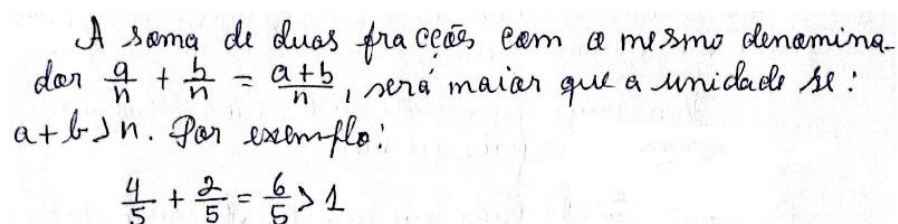 A soma de duas fracções com o mesmo denomina-
dor a/n + b/n = a+b/n, será maior que a unidade se:
a+b>n. Por exemplo:
4/5 + 2/5 = 6/5 > 1